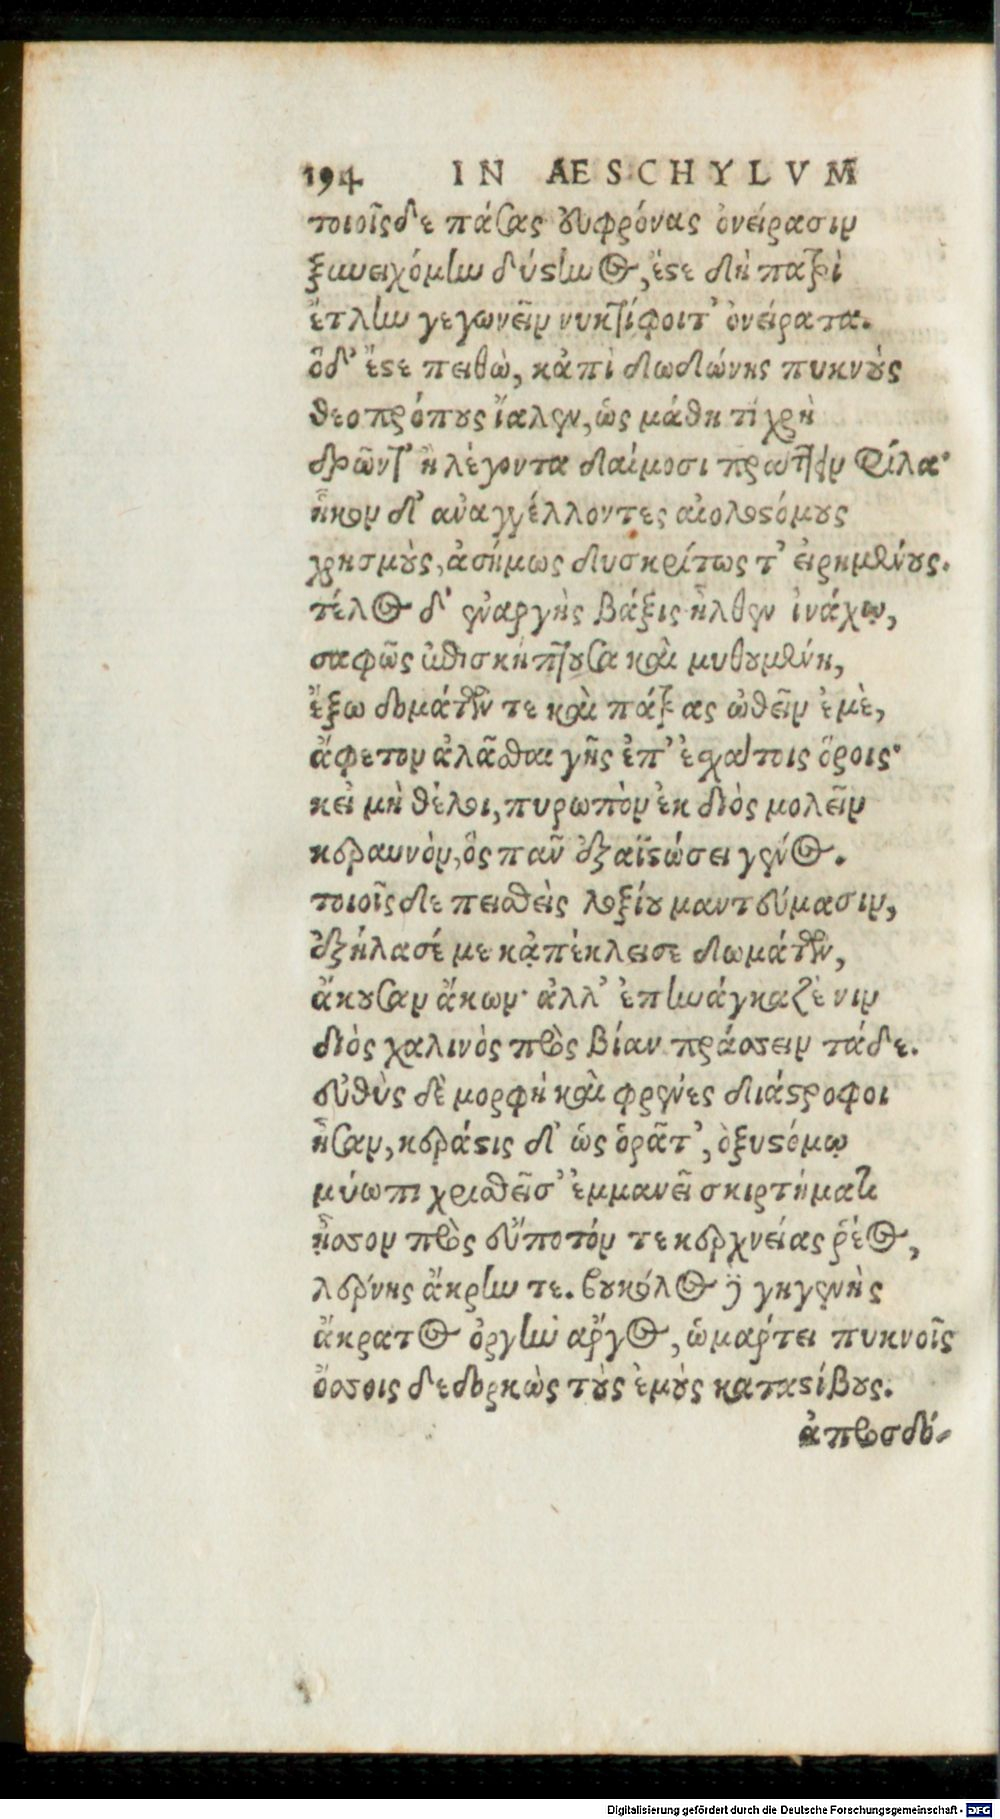 194 IN AESCHYLVM
τοιοῖσδε πάσας εὐφρόνας ὀνείρασιν
ξυνειχόμην δύστηνος, ἔστε δὴ πατρὶ
ἔτλην γεγωνεῖν νυκτίφοιτ' ὀνείρατα.
ὁ δ' ἔστε πειθὼ, κἀπὶ Δωδώνης πυκνοὺς
θεοπρόπους ἴαλεν, ὡς μάθη τί χρὴ
δρῶντ' ἢ λέγοντα δαίμοσι πράττειν φίλα·
ἧκον δ' αὐαγγέλλοντες αἰολοστόμους
χρησμοὺς, ἀσήμως δυσκρίτως τ' εἰρημένους.
τέλος δ' ἐναργὴς βάξις ἦλθεν ἰνάχῳ,
σαφῶς ἐπισκήπτουσα καὶ μυθουμένη,
ἔξω δομάτων τε καὶ πάτρας ὠθεῖν ἐμὲ,
ἄφετον ἀλᾶσθαι γῆς ἐπ' ἐσχάτοις ὅροις·
κεἰ μὴ θέλοι, πυρωπὸν ἐκ διὸς μολεῖν
κεραυνὸν, ὃς πᾶν ἐξαϊστώσει γένος.
τοιοῖσδε πεισθεὶς λοξίου μαντεύμασιν,
ἐξήλασέ με κᾀπέκλεισε δωμάτων,
ἄκουσαν ἄκων· ἀλλ' ἐπηνάγκαζέ νιν
διὸς χαλινὸς πρὸς βίαν πράσσειν τάδε.
εὐθὺς δὲ μορφὴ καὶ φρένες διάστροφοι
ἦσαν, κεράστις δ' ὡς ὁρᾶτ', ὀξυστόμῳ
μύωπι χρισθεῖσ' ἐμμανεῖ σκιρτήματι
ᾖσσον πρὸς εὔποτόν τε κερχνείας ῥέος,
λέρνης ἄκρην τε. βουκόλος δὲ γηγενὴς
ἄκρατος ὀργὴν ἄργος, ὡμάρτει πυκνοῖς
ὄσσοις δεδορκὼς τοὺς ἐμοὺς κατὰ στίβους.
ἀπροσδό-
Digitalisierung gefördert durch die Deutsche Forschungsgemeinschaft - DFG